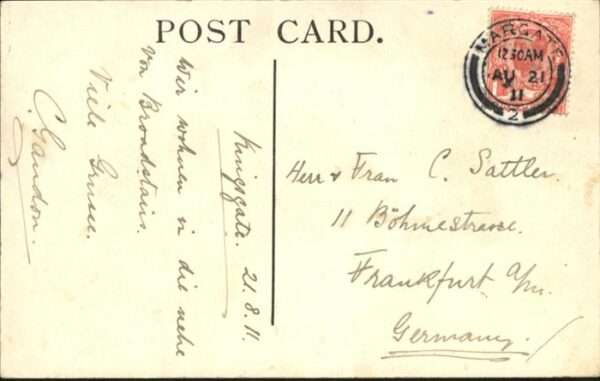 POST CARD.
MARGATE
12.30AM
AU 21
11
2
Kingsgate. 21.8.11.
Wir wohnen in die nehe
von Broadstairs.
Viele Grusse.
Herr & Frau C. Sattler.
11 Böhmestrasse.
Frankfurt a/m.
Germany.